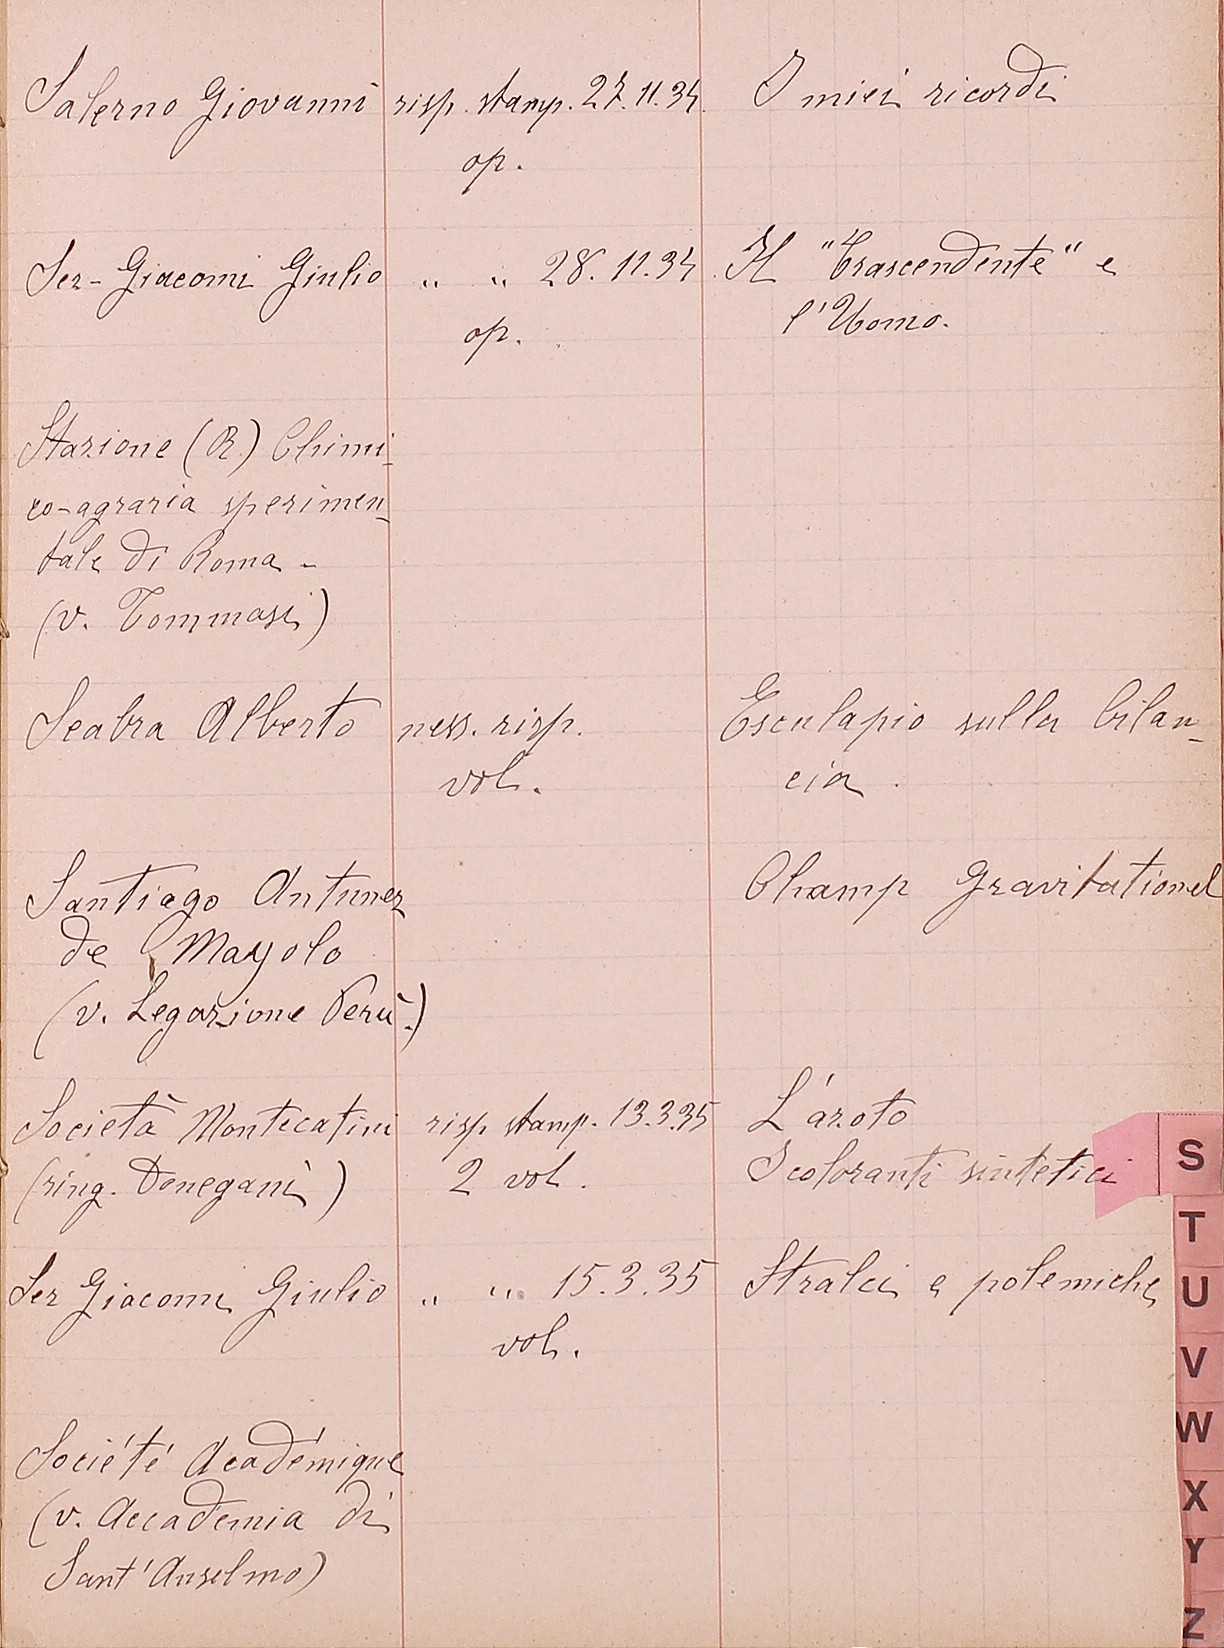 Salerno Giovanni risp. stamp. 27.11.34. I miei ricordi
op.
Ser-Giacomi Giulio „ „ 28.11.34. Il "Trascendente" e
op. l'Uomo.
Stazione (R.) Chimi-
co-agraria sperimen-
tale di Roma -
(v. Tommasi)
Seabra Alberto ness. risp. Esculapio sulla bilan-
vol. cia.
Santiago Antunez Champ Gravitationel
de Mayolo
(v. Legazione Perù.)
Società Montecatini risp. stamp. 13.3.35 L'azoto
(ring. Donegani) 2 vol. I coloranti sintetici
Ser Giacomi Giulio „ „ 15.3.35 Stralci e polemiche
vol.
Société Académique
(v. Accademia di
Sant'Anselmo)
S
T
U
V
W
X
Y
Z